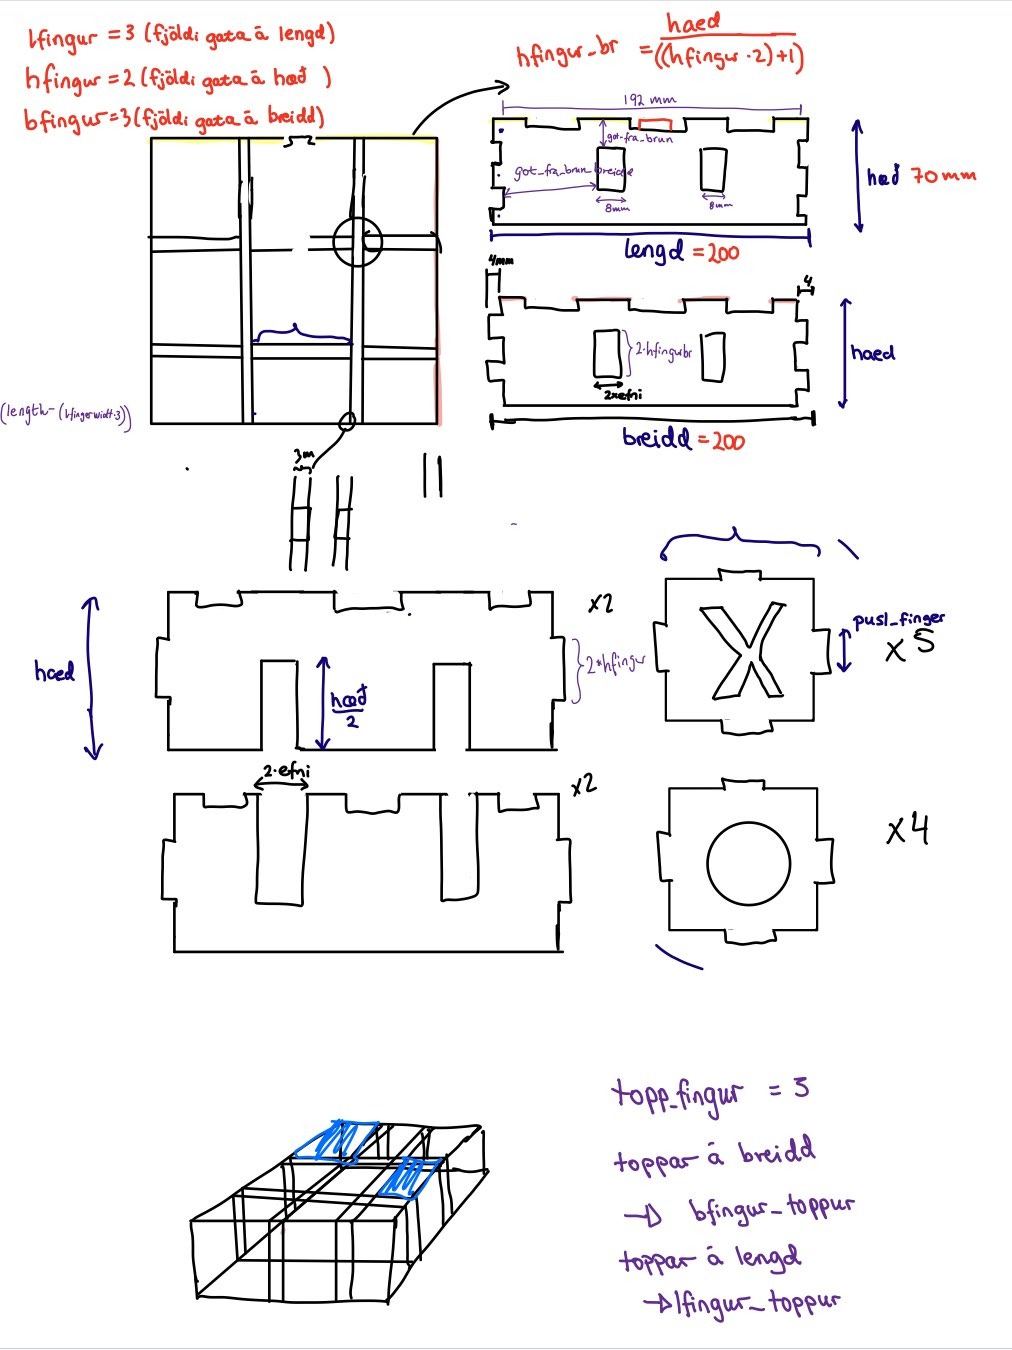 lfingur = 3 (fjöldi gata á lengd)
hfingur = 2 (fjöldi gata á hæð )
bfingur = 3 (fjöldi gata á breidd)
hfingur_br = haed
((hfingur · 2) + 1)
192 mm
got_fra_brun
got_fra_brun_breidd
8mm
8mm
hæð 70mm
lengd = 200
4mm
4
2·hfingurbr
2×efni
haed
breidd = 200
(length-(hfingerwidt·3))
3m
x2
haed
hæð
2
2*hfingur
pusl_finger
x 5
X
2·efni
x2
x4
topp_fingur = 3
toppar á breidd
→ bfingur_toppur
toppar á lengd
→ lfingur_toppur